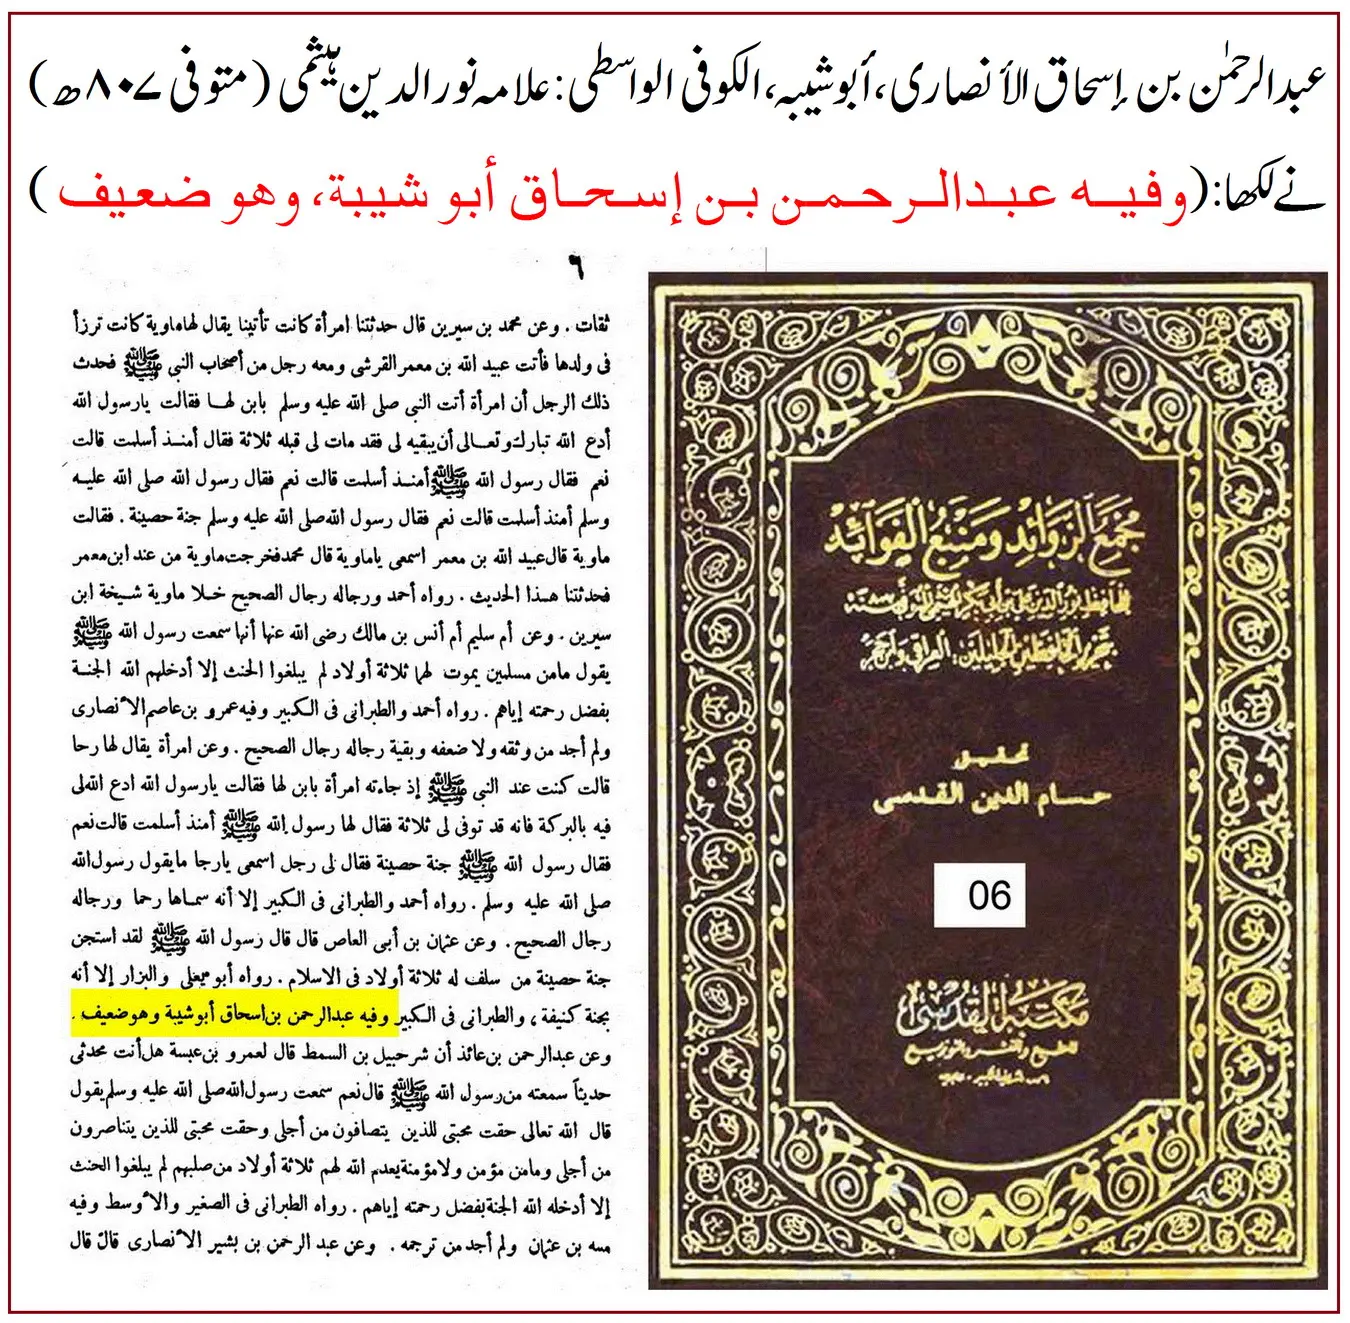 عبدالرحمٰن بن إسحاق الأنصاری، أبو شیبہ، الکوفی الواسطی: علامہ نورالدین ہیثمی (متوفی ۸۰۷ھ)
نے لکھا: (وفيه عبدالرحمن بن إسحاق أبو شيبة، وهو ضعيف)
٦
ثقات . وعن محمد بن سيرين قال حدثتنا امرأة كانت تأتينا يقال لها ماوية كانت ترزأ
فى ولدها فأتت عبيد الله بن معمر القرشى ومعه رجل من أصحاب النبى ﷺ فحدث
ذلك الرجل أن امرأة أتت النبى صلى الله عليه وسلم بابن لها فقالت يارسول الله
أدع الله تبارك وتعالى أن يبقيه لى فقد مات لى قبله ثلاثة فقال أمنذ أسلمت قالت
نعم فقال رسول الله ﷺ أمنذ أسلمت قالت نعم فقال رسول الله صلى الله عليه
وسلم أمنذ أسلمت قالت نعم فقال رسول الله صلى الله عليه وسلم جنة حصينة . فقالت
ماوية قال عبيد الله بن معمر اسمعى ياماوية قال محمد فخرجت ماوية من عند ابن معمر
فحدثتنا هذا الحديث . رواه أحمد ورجاله رجال الصحيح خلا ماوية شيخة ابن
سيرين . وعن أم سليم أم أنس بن مالك رضى الله عنها أنها سمعت رسول الله ﷺ
يقول مامن مسلمين يموت لهما ثلاثة أولاد لم يبلغوا الحنث إلا أدخلهم الله الجنة
بفضل رحمته إياهم . رواه أحمد والطبرانى فى الكبير وفيه عمرو بن عاصم الأنصارى
ولم أجد من وثقه ولا ضعفه وبقية رجاله رجال الصحيح . وعن امرأة يقال لها رحا
قالت كنت عند النبى ﷺ إذ جاءته امرأة بابن لها فقالت يارسول الله ادع الله لى
فيه بالبركة فانه قد توفى لى ثلاثة فقال لها رسول الله ﷺ أمنذ أسلمت قالت نعم
فقال رسول الله ﷺ جنة حصينة فقال لى رجل اسمعى يارجا ما يقول رسول الله
صلى الله عليه وسلم . رواه أحمد والطبرانى فى الكبير إلا أنه سماها رحما ورجاله
رجال الصحيح . وعن عثمان بن أبى العاص قال قال رسول الله ﷺ لقد استجن
جنة حصينة من سلف له ثلاثة أولاد فى الاسلام . رواه أبو يعلى والبزار إلا أنه
بجنة كنيفة ، والطبرانى فى الكبير وفيه عبدالرحمن بن اسحاق أبو شيبة وهو ضعيف .
وعن عبدالرحمن بن عائذ أن شرحبيل بن السمط قال لعمرو بن عبسة هل أنت محدثى
حديثاً سمعته من رسول الله ﷺ قال نعم سمعت رسول الله صلى الله عليه وسلم يقول
قال الله تعالى حقت محبتى للذين يتصافون من أجلى وحقت محبتى للذين يتناصرون
من أجلى ومامن مؤمن ولا مؤمنة يعدم الله لهم ثلاثة أولاد من صلبهم لم يبلغوا الحنث
إلا أدخله الله الجنة بفضل رحمته إياهم . رواه الطبرانى فى الصغير والأوسط وفيه
مسه بن عثمان ولم أجد من ترجمه . وعن عبد الرحمن بن بشير الأنصارى قال قال
مجمع الزوائد ومنبع الفوائد
للحافظ نور الدين علي بن أبي بكر الهيثمي المتوفى سنة
بتحرير الحافظين الجليلين: العراقي وابن حجر
تحقيق
حسام الدين القدسي
06
مكتبة القدسي
للطبع والنشر والتوزيع